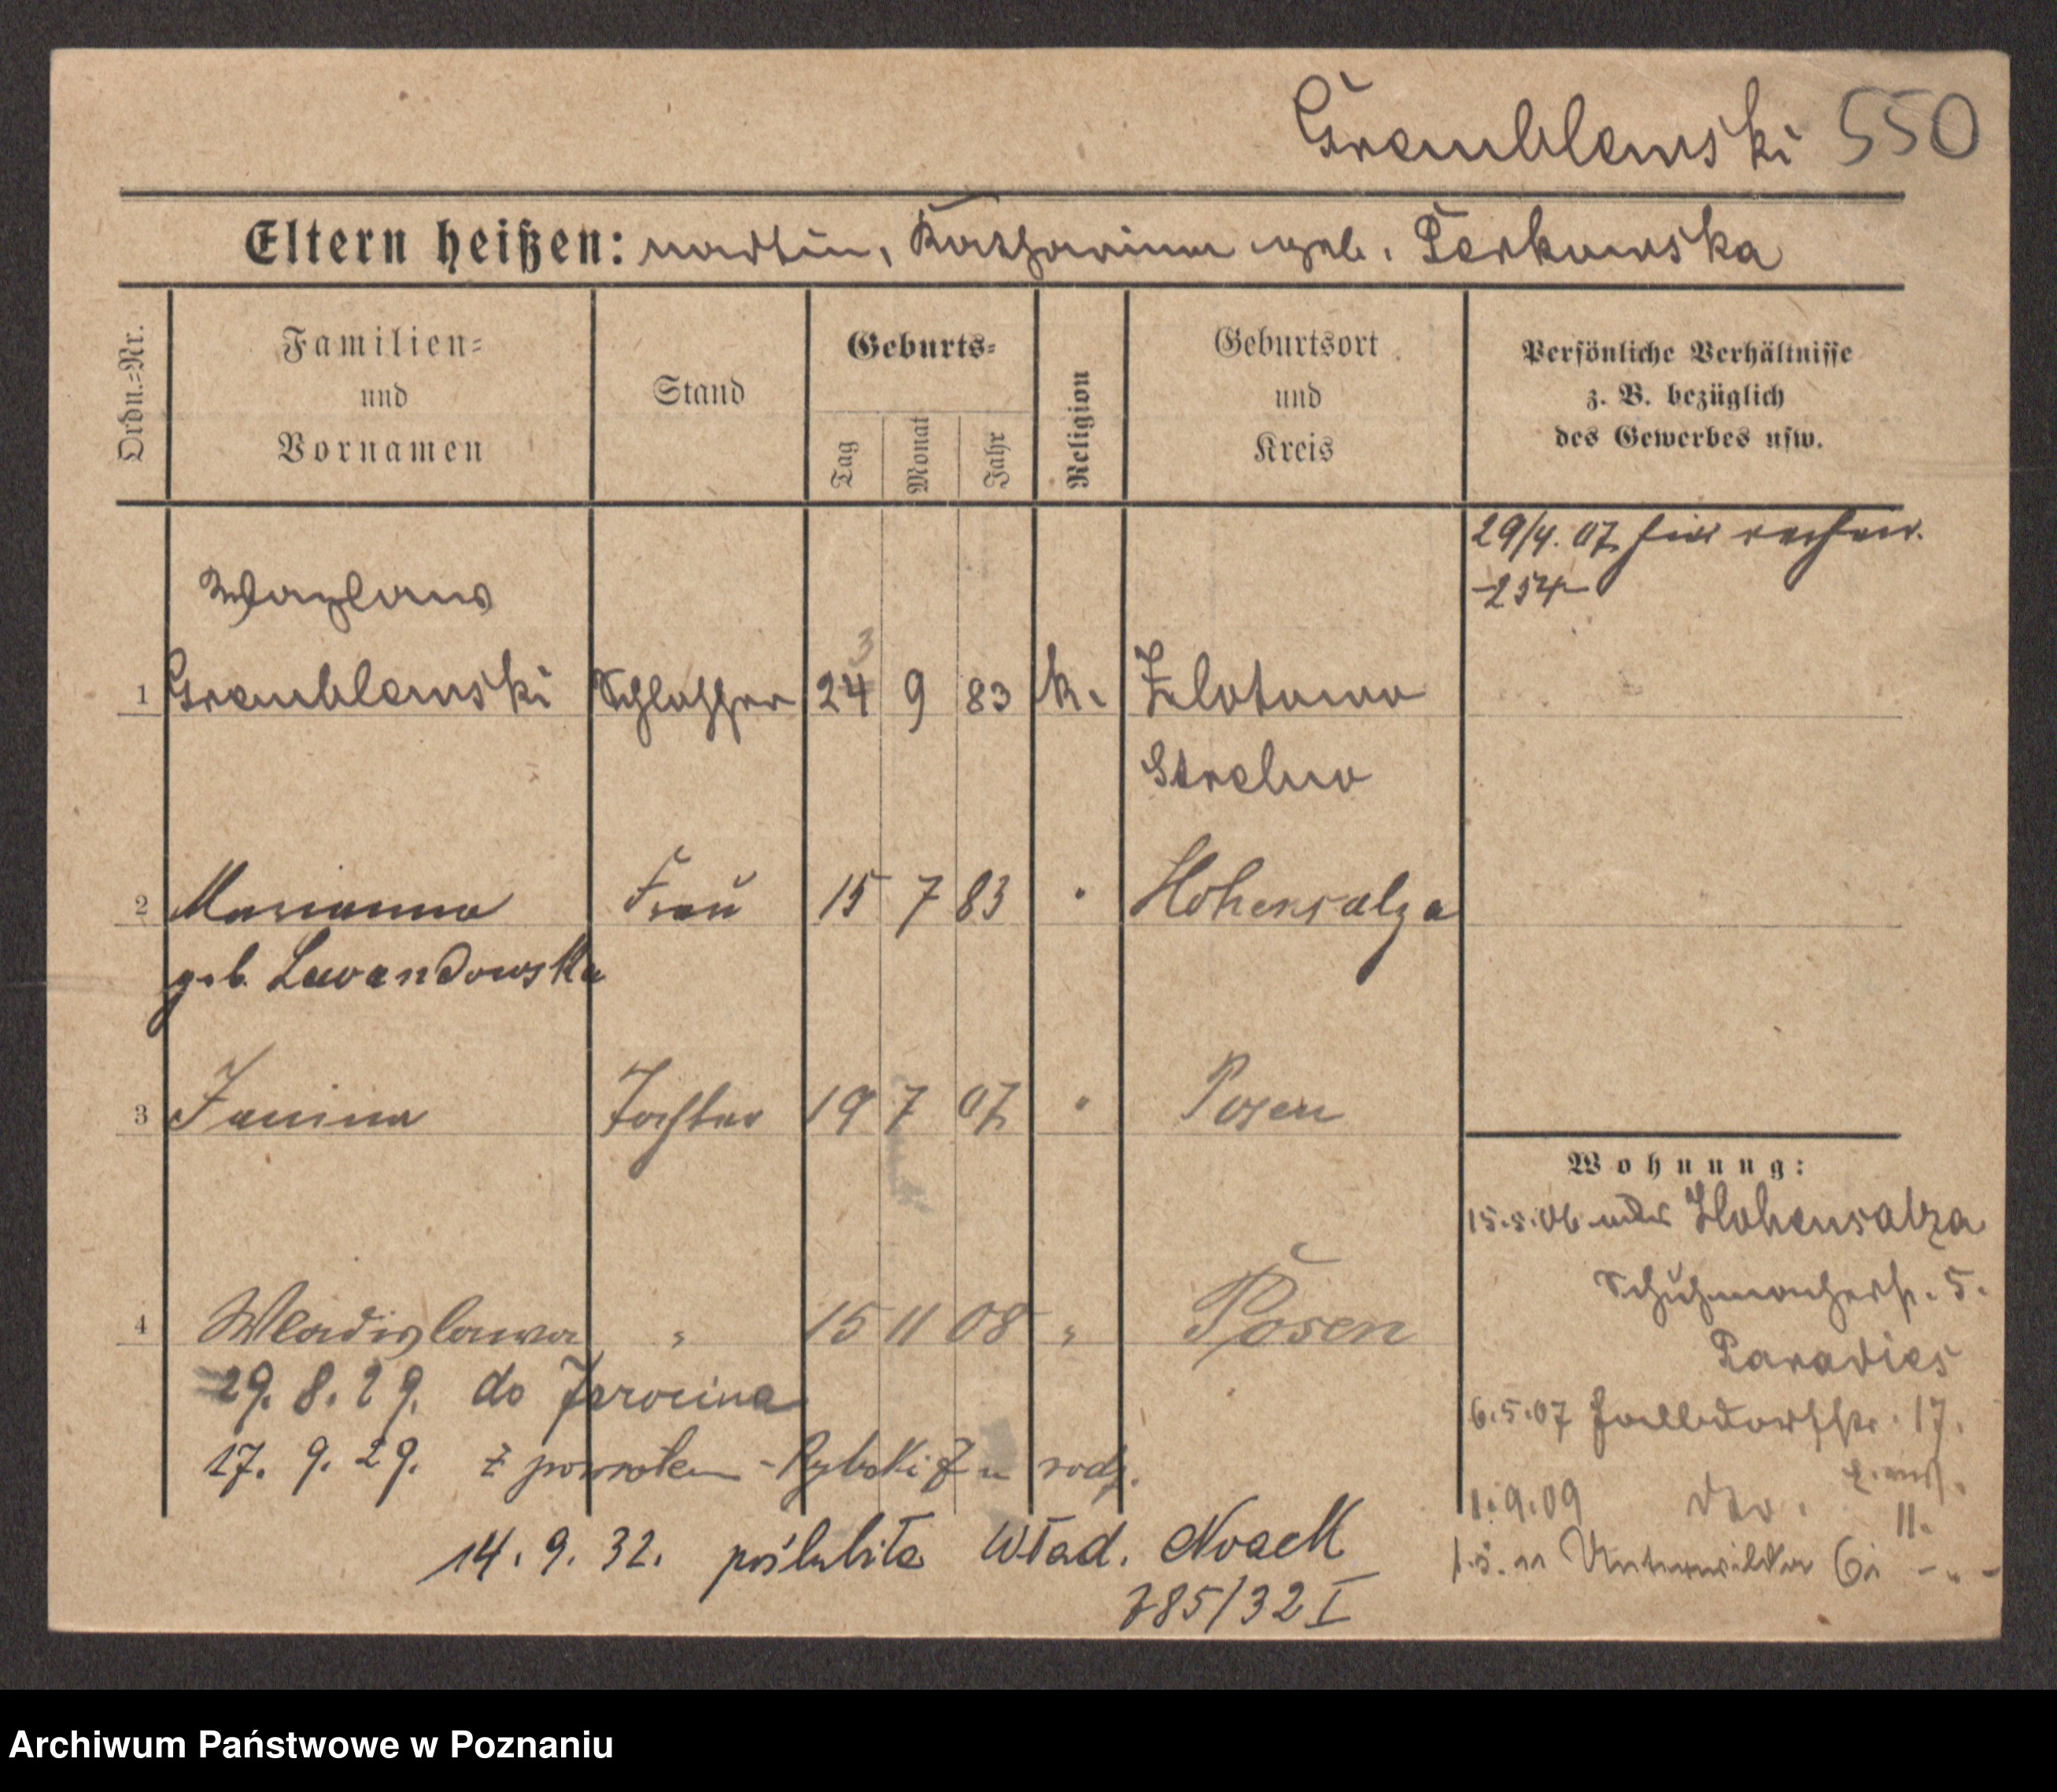 Gremblewski 550
Eltern heißen: Martin, Katharina geb. Perkowska
Ordn.=Nr.
Familien=
und
Vornamen
Stand
Geburts=
Tag
Monat
Jahr
Religion
Geburtsort
und
Kreis
Persönliche Verhältnisse
z. B. bezüglich
des Gewerbes usw.
29/4. 07
254
Wazlaw
1 Gremblewski Schlosser 24 3 9 83 k. Zlotowo
Strelno
2 Marianna Frau 15 7 83 " Hohensalza
geb. Lewandowska
3 Janina Tochter 19 7 07 " Posen
4 Wladislawa " 15 11 08 " Posen
29. 8. 29. do Jarocina
17. 9. 29. z powrotem - Rybaki 7 u rodz.
14. 9. 32. poślubiła Wład. Noack
785/32 I
Wohnung:
15.5.06 Hohensalza
Schuhmacherstr. 5.
Paradies
6.5.07 17.
1.9.09 dto. II.
Unterwilda 6
Archiwum Państwowe w Poznaniu